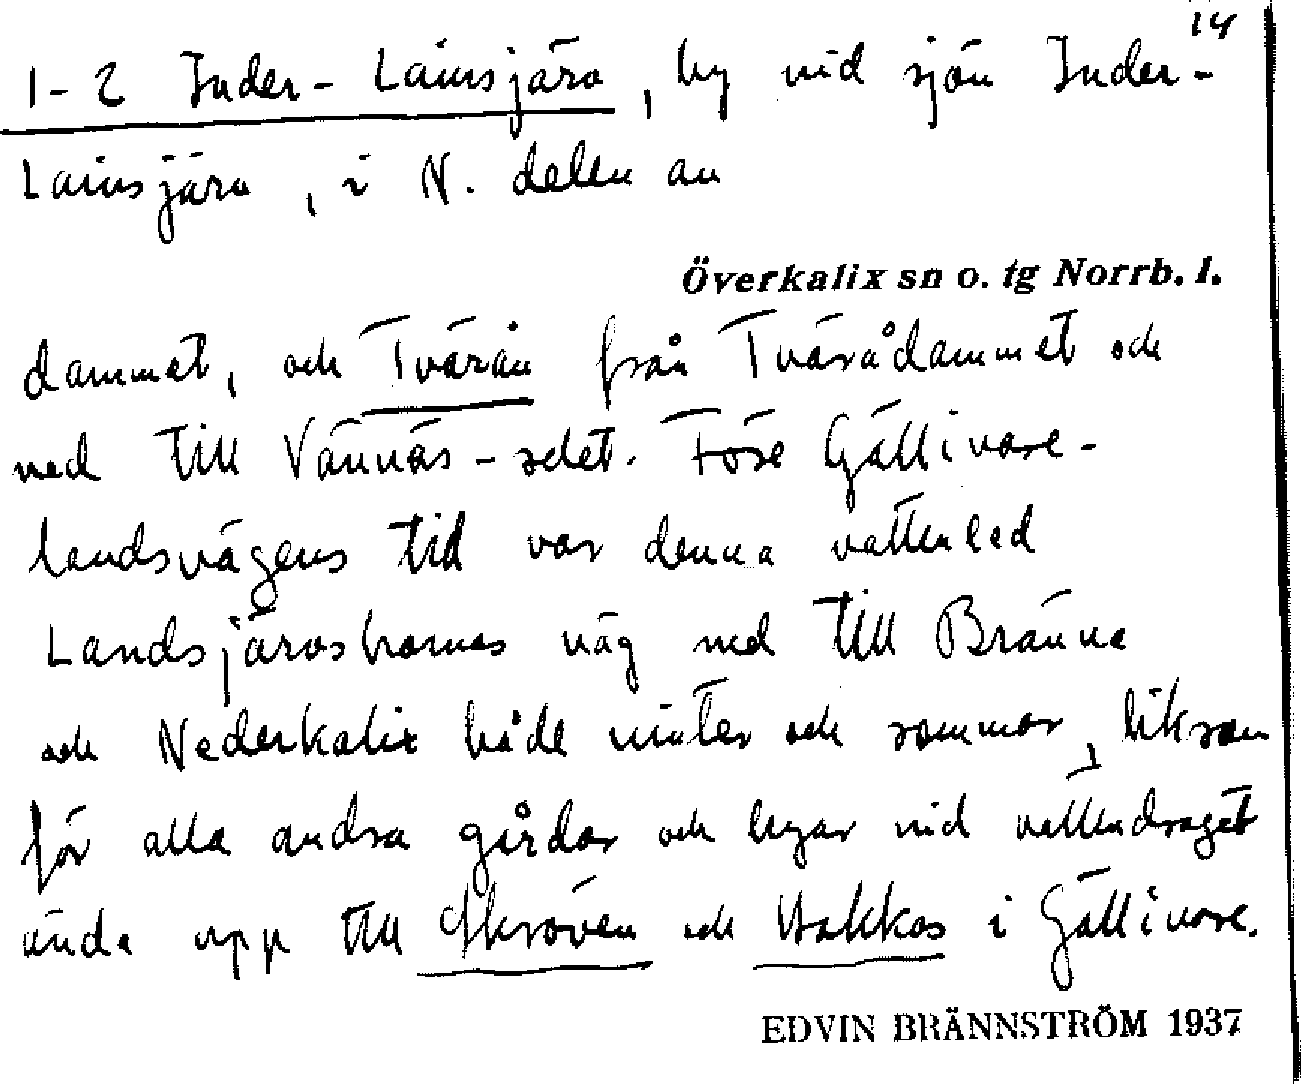 14
1-2 Inder-Lainsjärv, by vid sjön Inder-
Lainsjärv, i N. delen av
Överkalix sn o. tg Norrb. l.
dammet, och Tvärån från Tvärådammet och
ned till Vännäs-selet. Före Gällivare-
landsvägens tid var denna vattenled
Landsjärvsbornas väg ned till Bränna
och Nederkalix både vinter och sommar, liksom
för alla andra gårdar och byar vid vattendraget
ända upp till Skröven och Hakkas i Gällivare.
EDVIN BRÄNNSTRÖM 1937